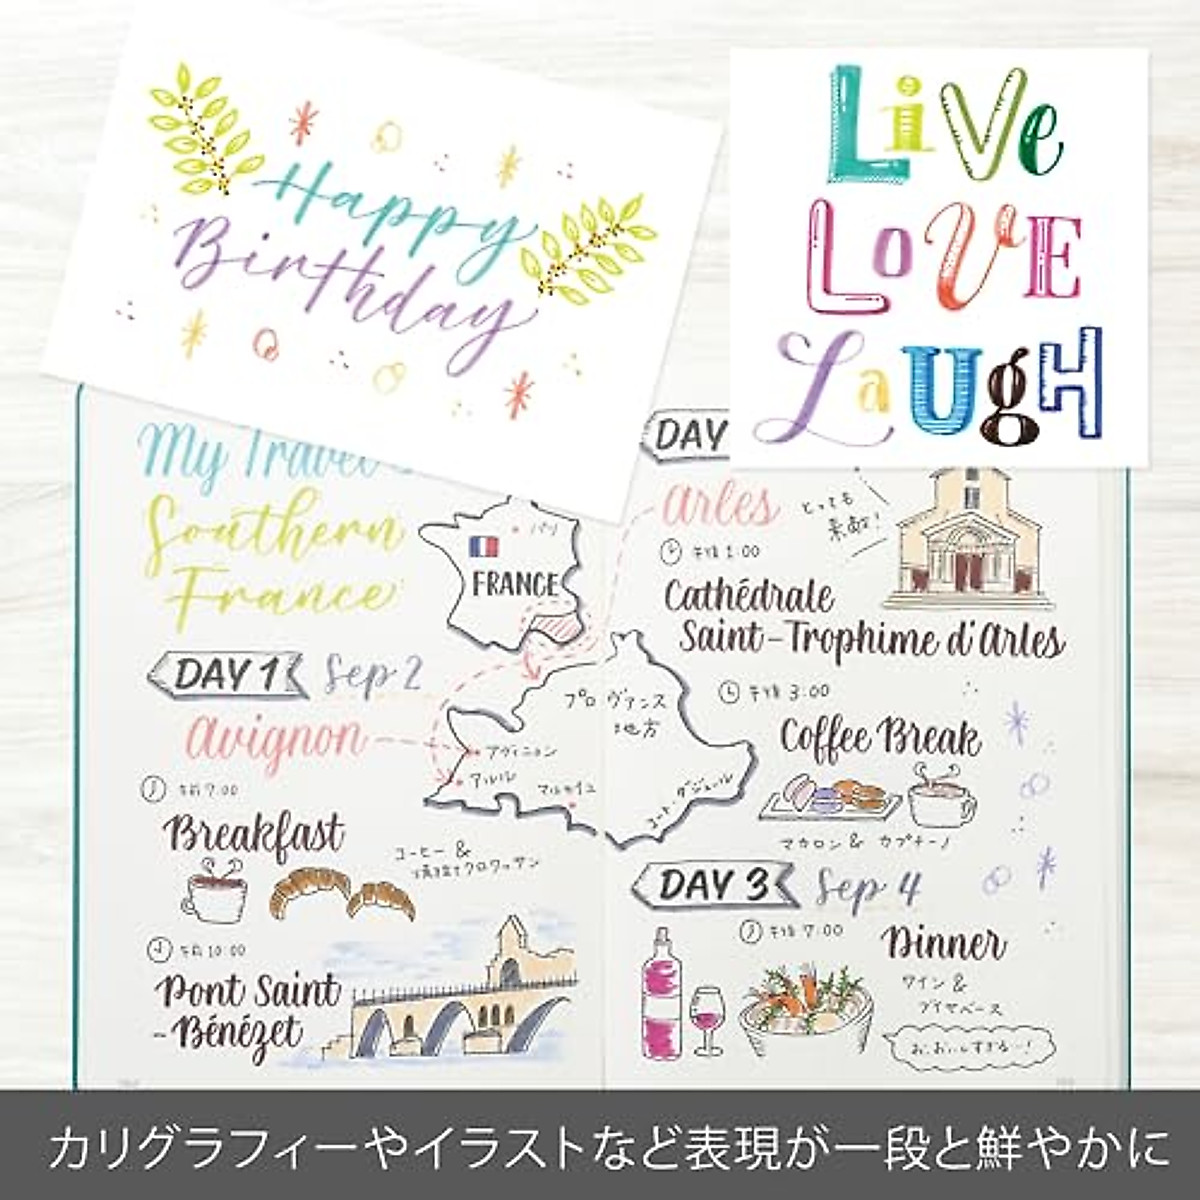 Happy
Birthday
Live
Love
Laugh
My Travel
Southern
France
パリ
FRANCE
DAY 1 Sep 2
Avignon
午前 7:00
Breakfast
コーヒー &
焼立てクロワッサン
午前 10:00
Pont Saint
-Bénézet
プロヴァンス
地方
アヴィニョン
アルル
マルセイユ
コート・ダジュール
DAY
Arles
とっても
素敵!
午後 1:00
Cathédrale
Saint-Trophime d'Arles
午後 3:00
Coffee Break
マカロン & カプチーノ
DAY 3 Sep 4
午後 7:00
Dinner
ワイン &
ブイヤベース
カリグラフィーやイラストなど表現が一段と鮮やかに